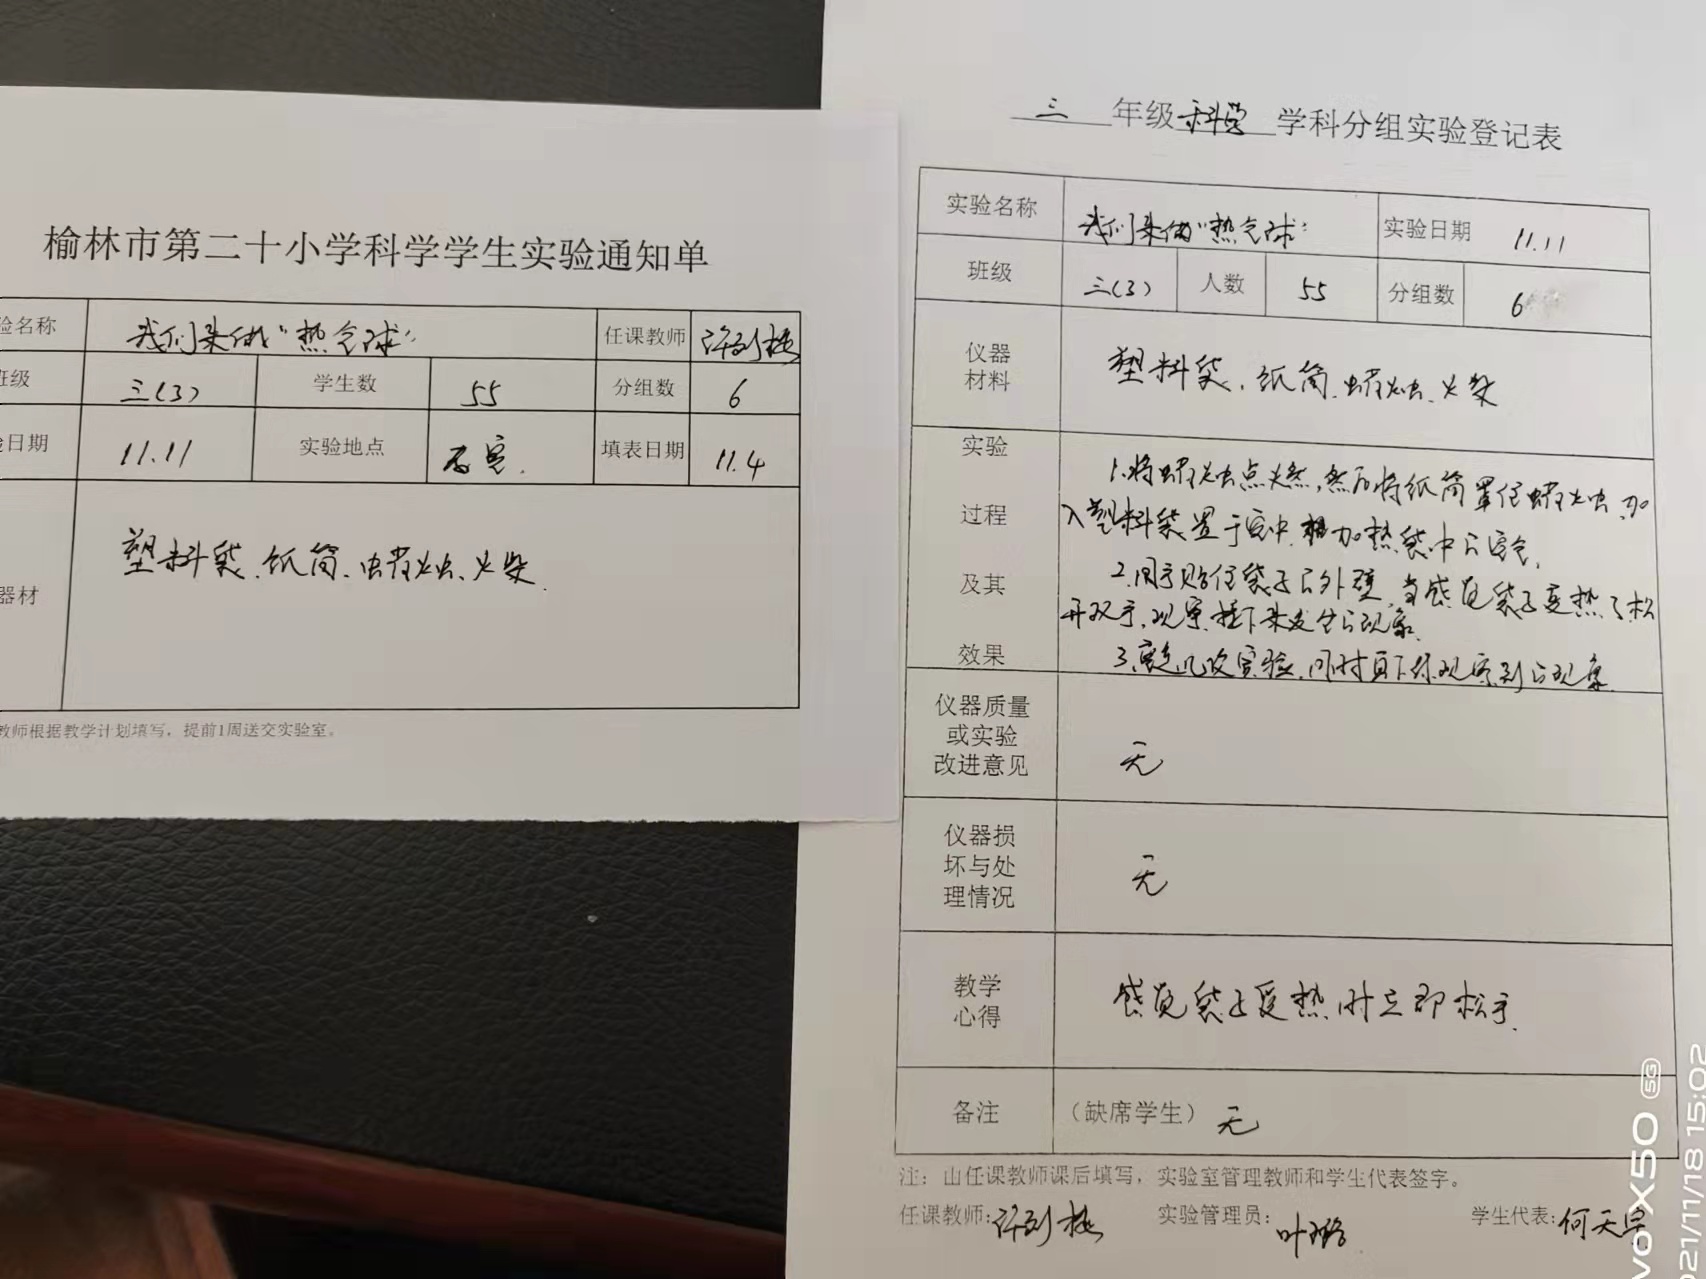 榆林市第二十小学科学学生实验通知单
验名称 我们来做“热气球” 任课教师
班级 三(3) 学生数 55 分组数 6
验日期 11.11 实验地点 填表日期 11.4
器材 塑料袋、纸筒、蜡烛、火柴
教师根据教学计划填写，提前1周送交实验室。
三 年级 科学 学科分组实验登记表
实验名称 我们来做“热气球” 实验日期 11.11
班级 三(3) 人数 55 分组数 6
仪器
材料
塑料袋、纸筒、蜡烛、火柴
实验
过程
及其
效果
1.将蜡烛点燃,然后将纸筒罩住蜡烛,
塑料袋置于 加热袋中的空气.
2.用手贴住袋子的外壁,当感觉袋子变热了松
开双手,观察接下来发生的现象.
3.重复几次实验,同时写下你观察到的现象.
仪器质量
或实验
改进意见
无
仪器损
坏与处
理情况
无
教学
心得
感觉袋子变热时立即松手.
备注 （缺席学生） 无
注：由任课教师课后填写，实验室管理教师和学生代表签字。
任课教师: 实验管理员: 叶璐 学生代表: 何天宗
vo X50 5G
021/11/18 15:02